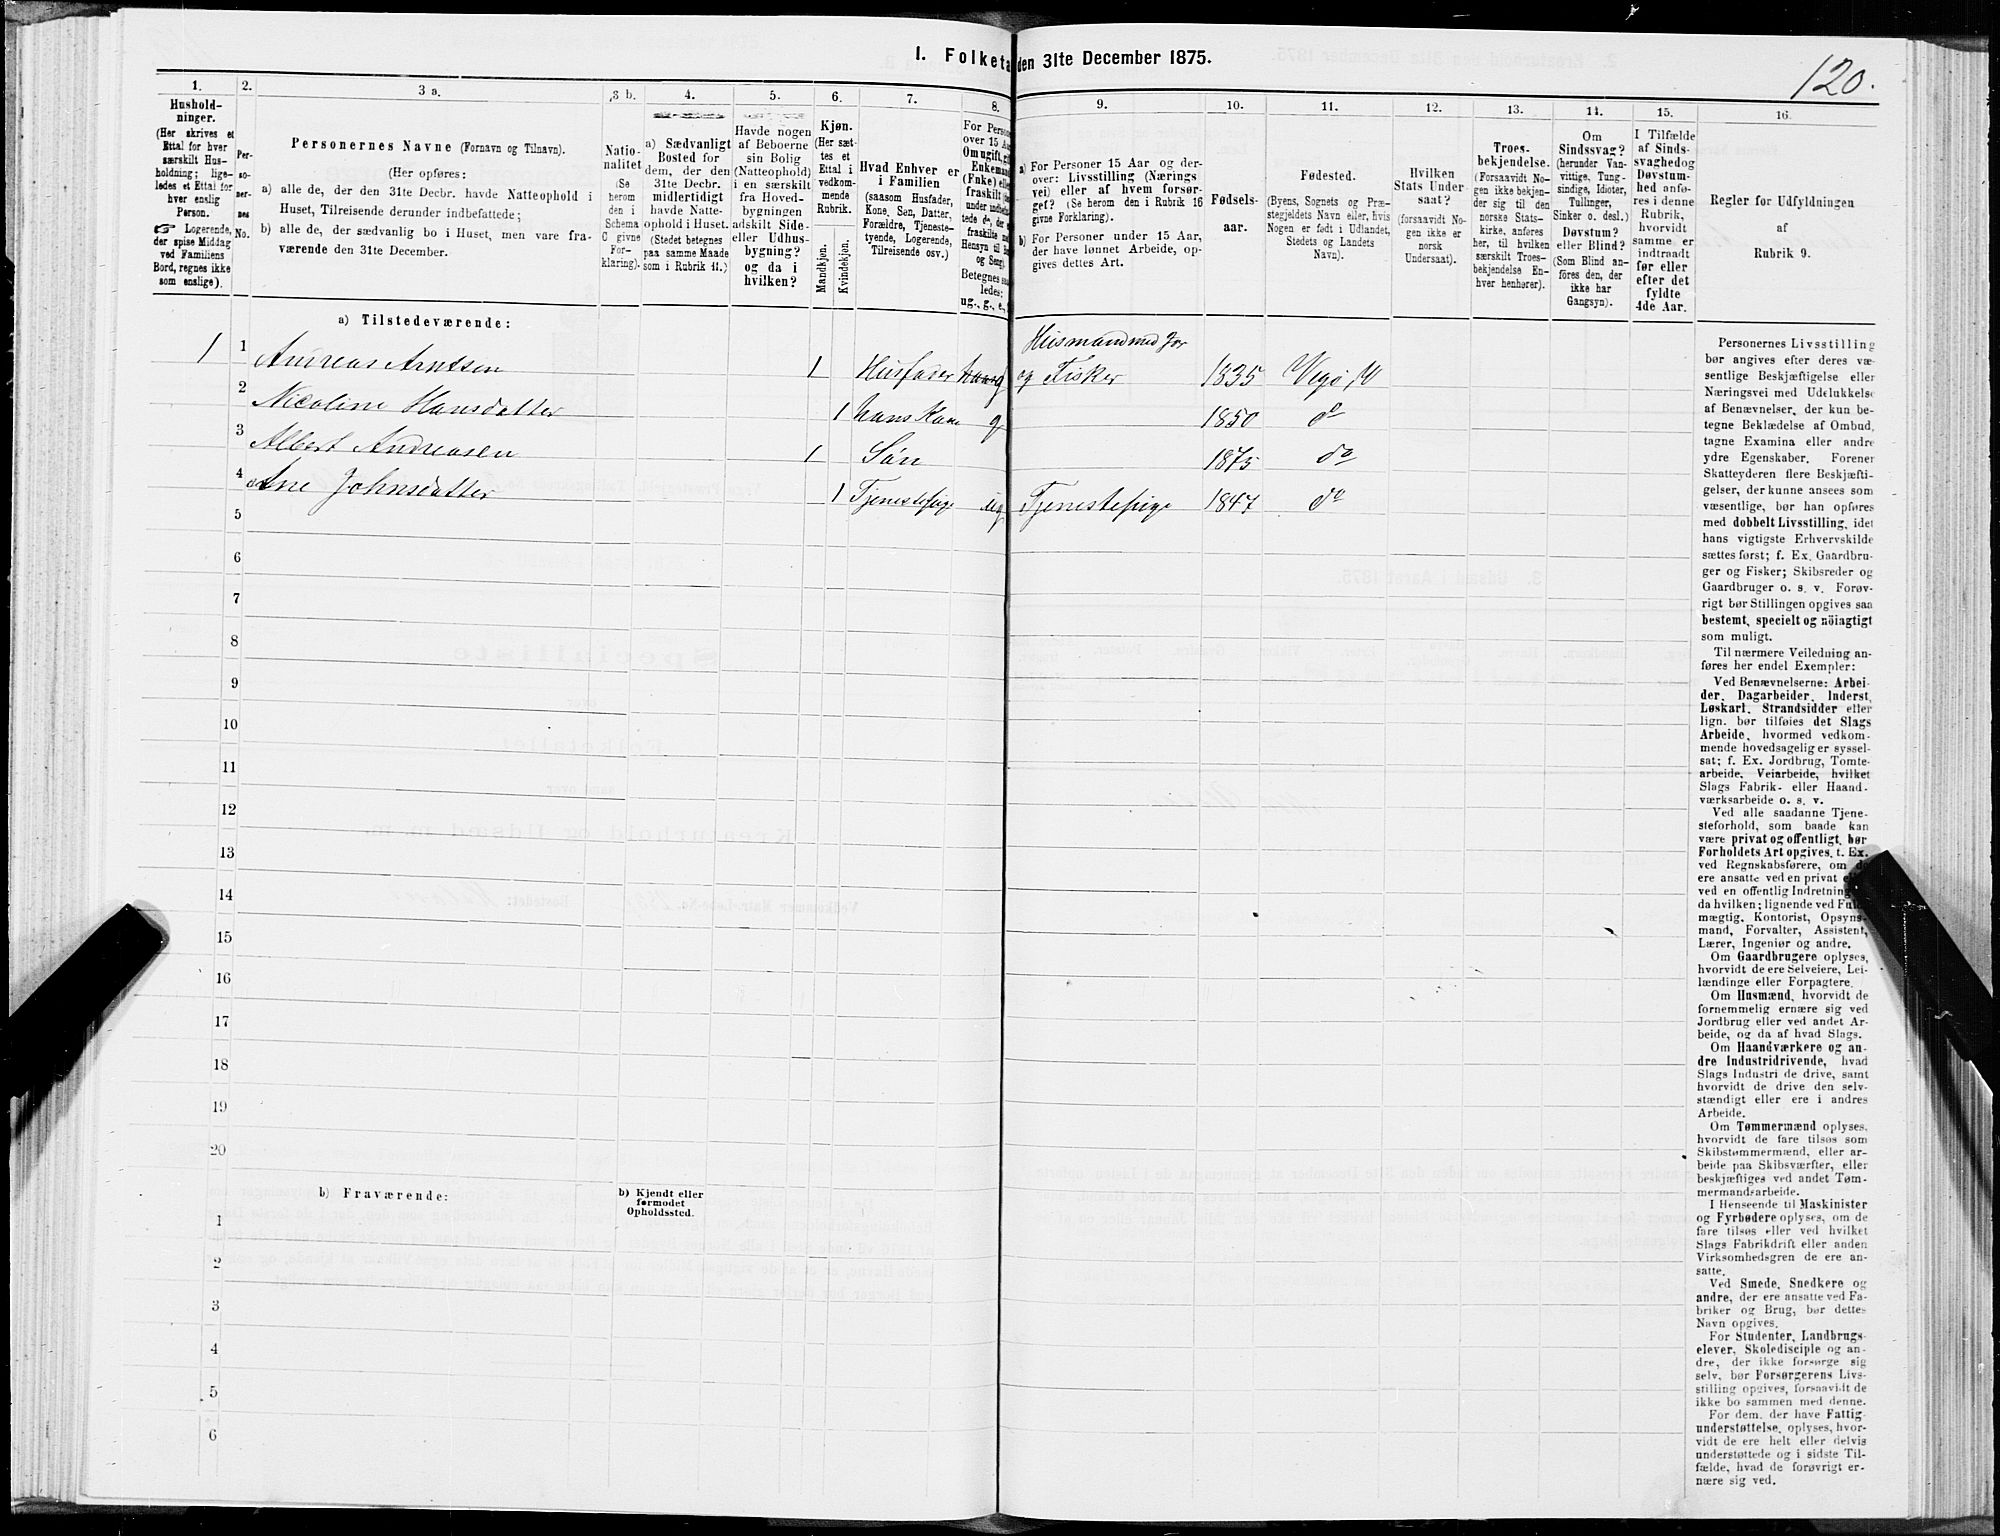 I. Folketa den 31te December 1875.
120.
1. 2. 3 a. 3 b. 4. 5. 6. 7. 8. 9. 10. 11. 12. 13. 14. 15. 16.
Hushold-
ninger.
(Her skrives et
Ettal for hver
særskilt Hus-
holdning; lige-
ledes et Ettal for
hver enslig
Person.
☞ Logerende,
der spise Middag
ved Familiens
Bord, regnes ikke
som enslige).
Per-
so-
ner-
nes
No.
Personernes Navne (Fornavn og Tilnavn).
(Her opføres:
a) alle de, der den 31te Decbr. havde Natteophold i
Huset, Tilreisende derunder indbefattede;
b) alle de, der sædvanlig bo i Huset, men vare fra-
værende den 31te December.
Natio-
nalitet
(Se
herom
den i
Schema
C givne
For-
klaring).
a) Sædvanligt
Bosted for
dem, der den
31te Decbr.
midlertidigt
havde Natte-
ophold i Huset.
(Stedet betegnes
paa samme Maade
som i Rubrik 11.)
Havde nogen
af Beboerne
sin Bolig
(Natteophold)
i en særskilt
fra Hoved-
bygningen
adskilt Side-
eller Udhus-
bygning?
og da i
hvilken?
Kjøn.
(Her sæt-
tes et
Ettal i
vedkom-
mende
Rubrik.
Mandkjøn.
Kvindekjøn.
Hvad Enhver er
i Familien
(saasom Husfader,
Kone, Søn, Datter,
Forældre, Tjeneste-
tyende, Logerende,
Tilreisende osv.)
For Perso
over 15 Aa
Om ugift, gif
Enkemand
(Enke) elle
fraskilt
under indbefat-
tede de, der
fraskilte m
Hensyn til B
og Seng).
Betegnes saa
ledes:
ug., g., e.,
a) For Personer 15 Aar og der-
over: Livsstilling (Nærings
vei) eller af hvem forsør-
get? (Se herom den i Rubrik 16
givne Forklaring).
b) For Personer under 15 Aar,
der have lønnet Arbeide, op-
gives dettes Art.
Fødsels-
aar.
Fødested.
(Byens, Sognets og Præ-
stegjeldets Navn eller, hvis
Nogen er født i Udlandet,
Stedets og Landets
Navn).
Hvilken
Stats Under-
saat?
(forsaavidt No-
gen ikke er
norsk
Undersaat).
Troes-
bekjendelse.
(Forsaavidt No-
gen ikke bekjen-
der sig til den
norske Stats-
kirke, anføres
her, til hvilken
særskilt Troes-
bekjendelse En-
hver henhører).
Om
Sindssvag?
(herunder Van-
vittige, Tung-
sindige, Idioter,
Tullinger,
Sinker o. desl.)
Døvstum?
eller Blind?
(Som Blind an-
føres den, der
ikke har
Gangsyn).
I Tilfælde
af Sinds-
svaghed og
Døvstum-
hed anfø-
res i denne
Rubrik,
hvorvidt
samme er
indtraadt
før eller
efter det
fyldte
4de Aar.
Regler for Udfyldningen
af
Rubrik 9.
a) Tilstedeværende:
Husmand med Jor
1 1 Andreas Arntsen 1 Husfader g og Fisker 1835 Vegø
2 Nicoline Hansdatter 1 hans Kone g 1850 do
3 Albert Andreasen 1 Søn 1875 do
4 Ane Johnsdatter 1 Tjenestepige ug Tjenestepige 1847 do
5
6
7
8
9
10
11
12
13
14
15
16
17
18
19
20
b) Fraværende:
b) Kjendt eller
formodet
Opholdssted.
1
2
3
4
5
6
Personernes Livsstilling
bør angives efter deres væ-
sentlige Beskjæftigelse eller
Næringsvei med Udelukkelse
af Benævnelser, der kun be-
tegne Beklædelse af Ombud,
tagne Examina eller andre
ydre Egenskaber. Forener
Skatteyderen flere Beskjæfti-
gelser, der kunne ansees som
væsentlige, bør han opføres
med dobbelt Livsstilling, idet
hans vigtigste Erhvervskilde
sættes først; f. Ex. Gaardbru-
ger og Fisker; Skibsreder og
Gaardbruger o. s. v. Forøv-
rigt bør Stillingen opgives saa
bestemt, specielt og nöiagtigt
som muligt.
Til nærmere Veiledning an-
føres her endel Exempler:
Ved Benævnelserne: Arbei-
der, Dagarbeider, Inderst,
Løskarl, Strandsidder eller
lign. bør tilføies det Slags
Arbeide, hvormed vedkom-
mende hovedsagelig er syssel-
sat; f. Ex. Jordbrug, Tomte-
arbeide, Veiarbeide, hvilket
Slags Fabrik- eller Haand-
værksarbeide o. s. v.
Ved alle saadanne Tjene-
steforhold, som baade kan
være privat og offentligt, bør
Forholdets Art opgives, t. Ex.
ved Regnskabsførere, om de
ere ansatte ved en privat el
ved en offentlig Indretning
da hvilken; lignende ved Ful
mægtig, Kontorist, Opsyns-
mand, Forvalter, Assistent,
Lærer, Ingeniør og andre.
Om Gaardbrugere oplyses,
hvorvidt de ere Selveiere, Lei-
lændinge eller Forpagtere.
Om Husmænd, hvorvidt de
fornemmelig ernære sig ved
Jordbrug eller ved andet Ar-
beide, og da af hvad Slags.
Om Haandværkere og an-
dre Industridrivende, hvad
Slags Industri de drive, samt
hvorvidt de drive den selv-
stændigt eller ere i andres
Arbeide.
Om Tømmermænd oplyses,
hvorvidt de fare tilsøs som
Skibstømmermænd, eller ar-
beide paa Skibsværfter, eller
beskjæftiges ved andet Tøm-
mermandsarbeide.
I Henseende til Maskinister
og Fyrbødere oplyses, om de
fare tilsøs eller ved hvilket
Slags Fabrikdrift eller anden
Virksomhedsgren de ere an-
satte.
Ved Smede, Snedkere og
andre, der ere ansatte ved Fa-
briker og Brug, bør dettes
Navn opgives.
For Studenter, Landbrugs-
elever, Skoledisciple og an-
dre, der ikke forsørge sig
selv, bør Forsørgerens Livs-
stilling opgives, forsaavidt de
ikke bo sammen med denne.
For dem, der have Fattig-
understøttelse, oplyses, hvor-
vidt de ere helt eller delvis
understøttede og i sidste Til-
fælde, hvad de forøvrigt er-
nære sig ved.